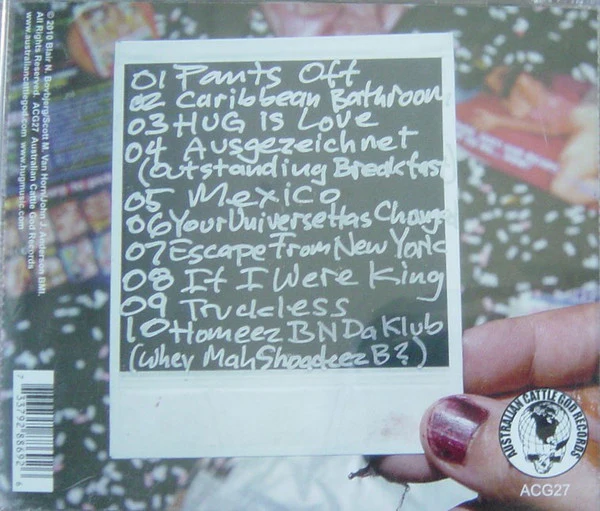 01 Pants Off
02 Caribbean Bathroom
03 HUG is Love
04 Ausgezeichnet
(Outstanding Breakfast
05 Mexico
06 Your Universe Has Change
07 Escape From New York
08 If I Were King
09 Truckless
10 Homeez B N Da Klub
(Whey Mah Shoadeez B?)
© 2010 Blair N. Bovbjerg/Scott M. Van Horn/John J. Anderson BMI.
All Rights Reserved. ACG27 Australian Cattle God Records
www.australiancattlegod.com www.hugmusic.com
7 33792 88692 6
AUSTRALIAN CATTLE GOD RECORDS
ACG27